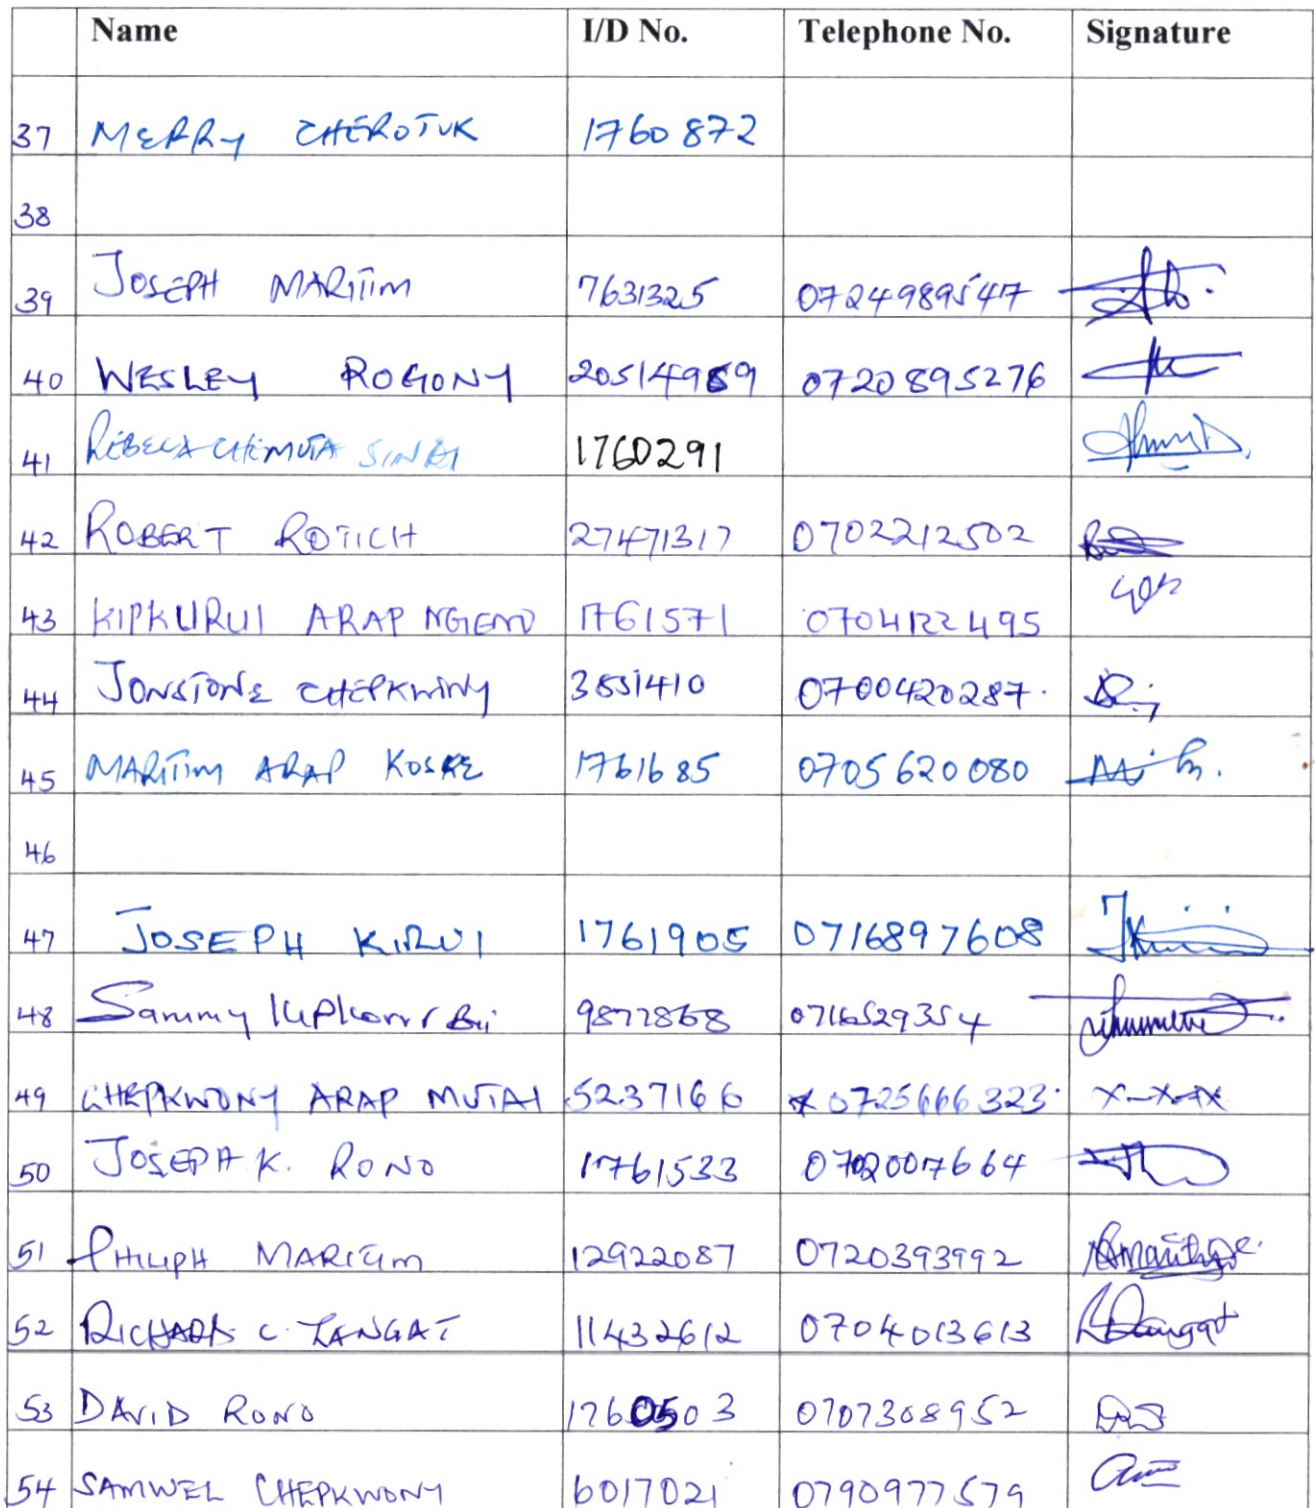 Name I/D No. Telephone No. Signature
37 MERRY CHEROTUK 1760872
38
39 JOSEPH MARITIM 7631325 0724989547
40 WESLEY ROGONY 20514989 0720895276
41 REBECA CHEMUTA 1760291
42 ROBERT ROTICH 27471317 0702212502
43 KIPKURUI ARAP NGENO 1761571 0704122495
44 JONSTONE CHEPKWINY 3551410 0700420287.
45 MARITIM ARAP KOSKE 1761685 0705620080
46
47 JOSEPH KIRUI 1761905 0716897608
48 Sammy Bii 9877868 0716529354
49 CHEPKWONY ARAP MUTAI 5237166 0725666323. X-X-X
50 JOSEPH K. RONO 1761533 0702007664
51 PHILIPH MARITIM 12922087 0720393992
52 RICHARD C. LANGAT 11432612 0704013613
53 DAVID RONO 1760503 0707308952
54 SAMWEL CHEPKWONY 6017021 0790977579